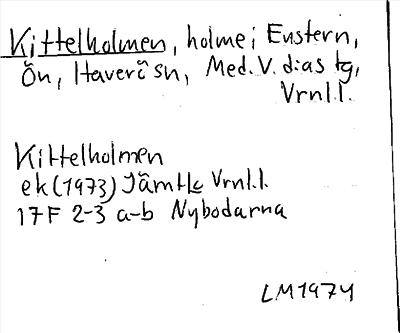 Kittelholmen, holme i Enstern,
Ön, Haverö sn, Med.V. d:as tg,
Vrnl.l.
Kittelholmen
ek (1973) Jämtlc Vrnl.l.
17F 2-3 a-b Nybodarna
LM1974